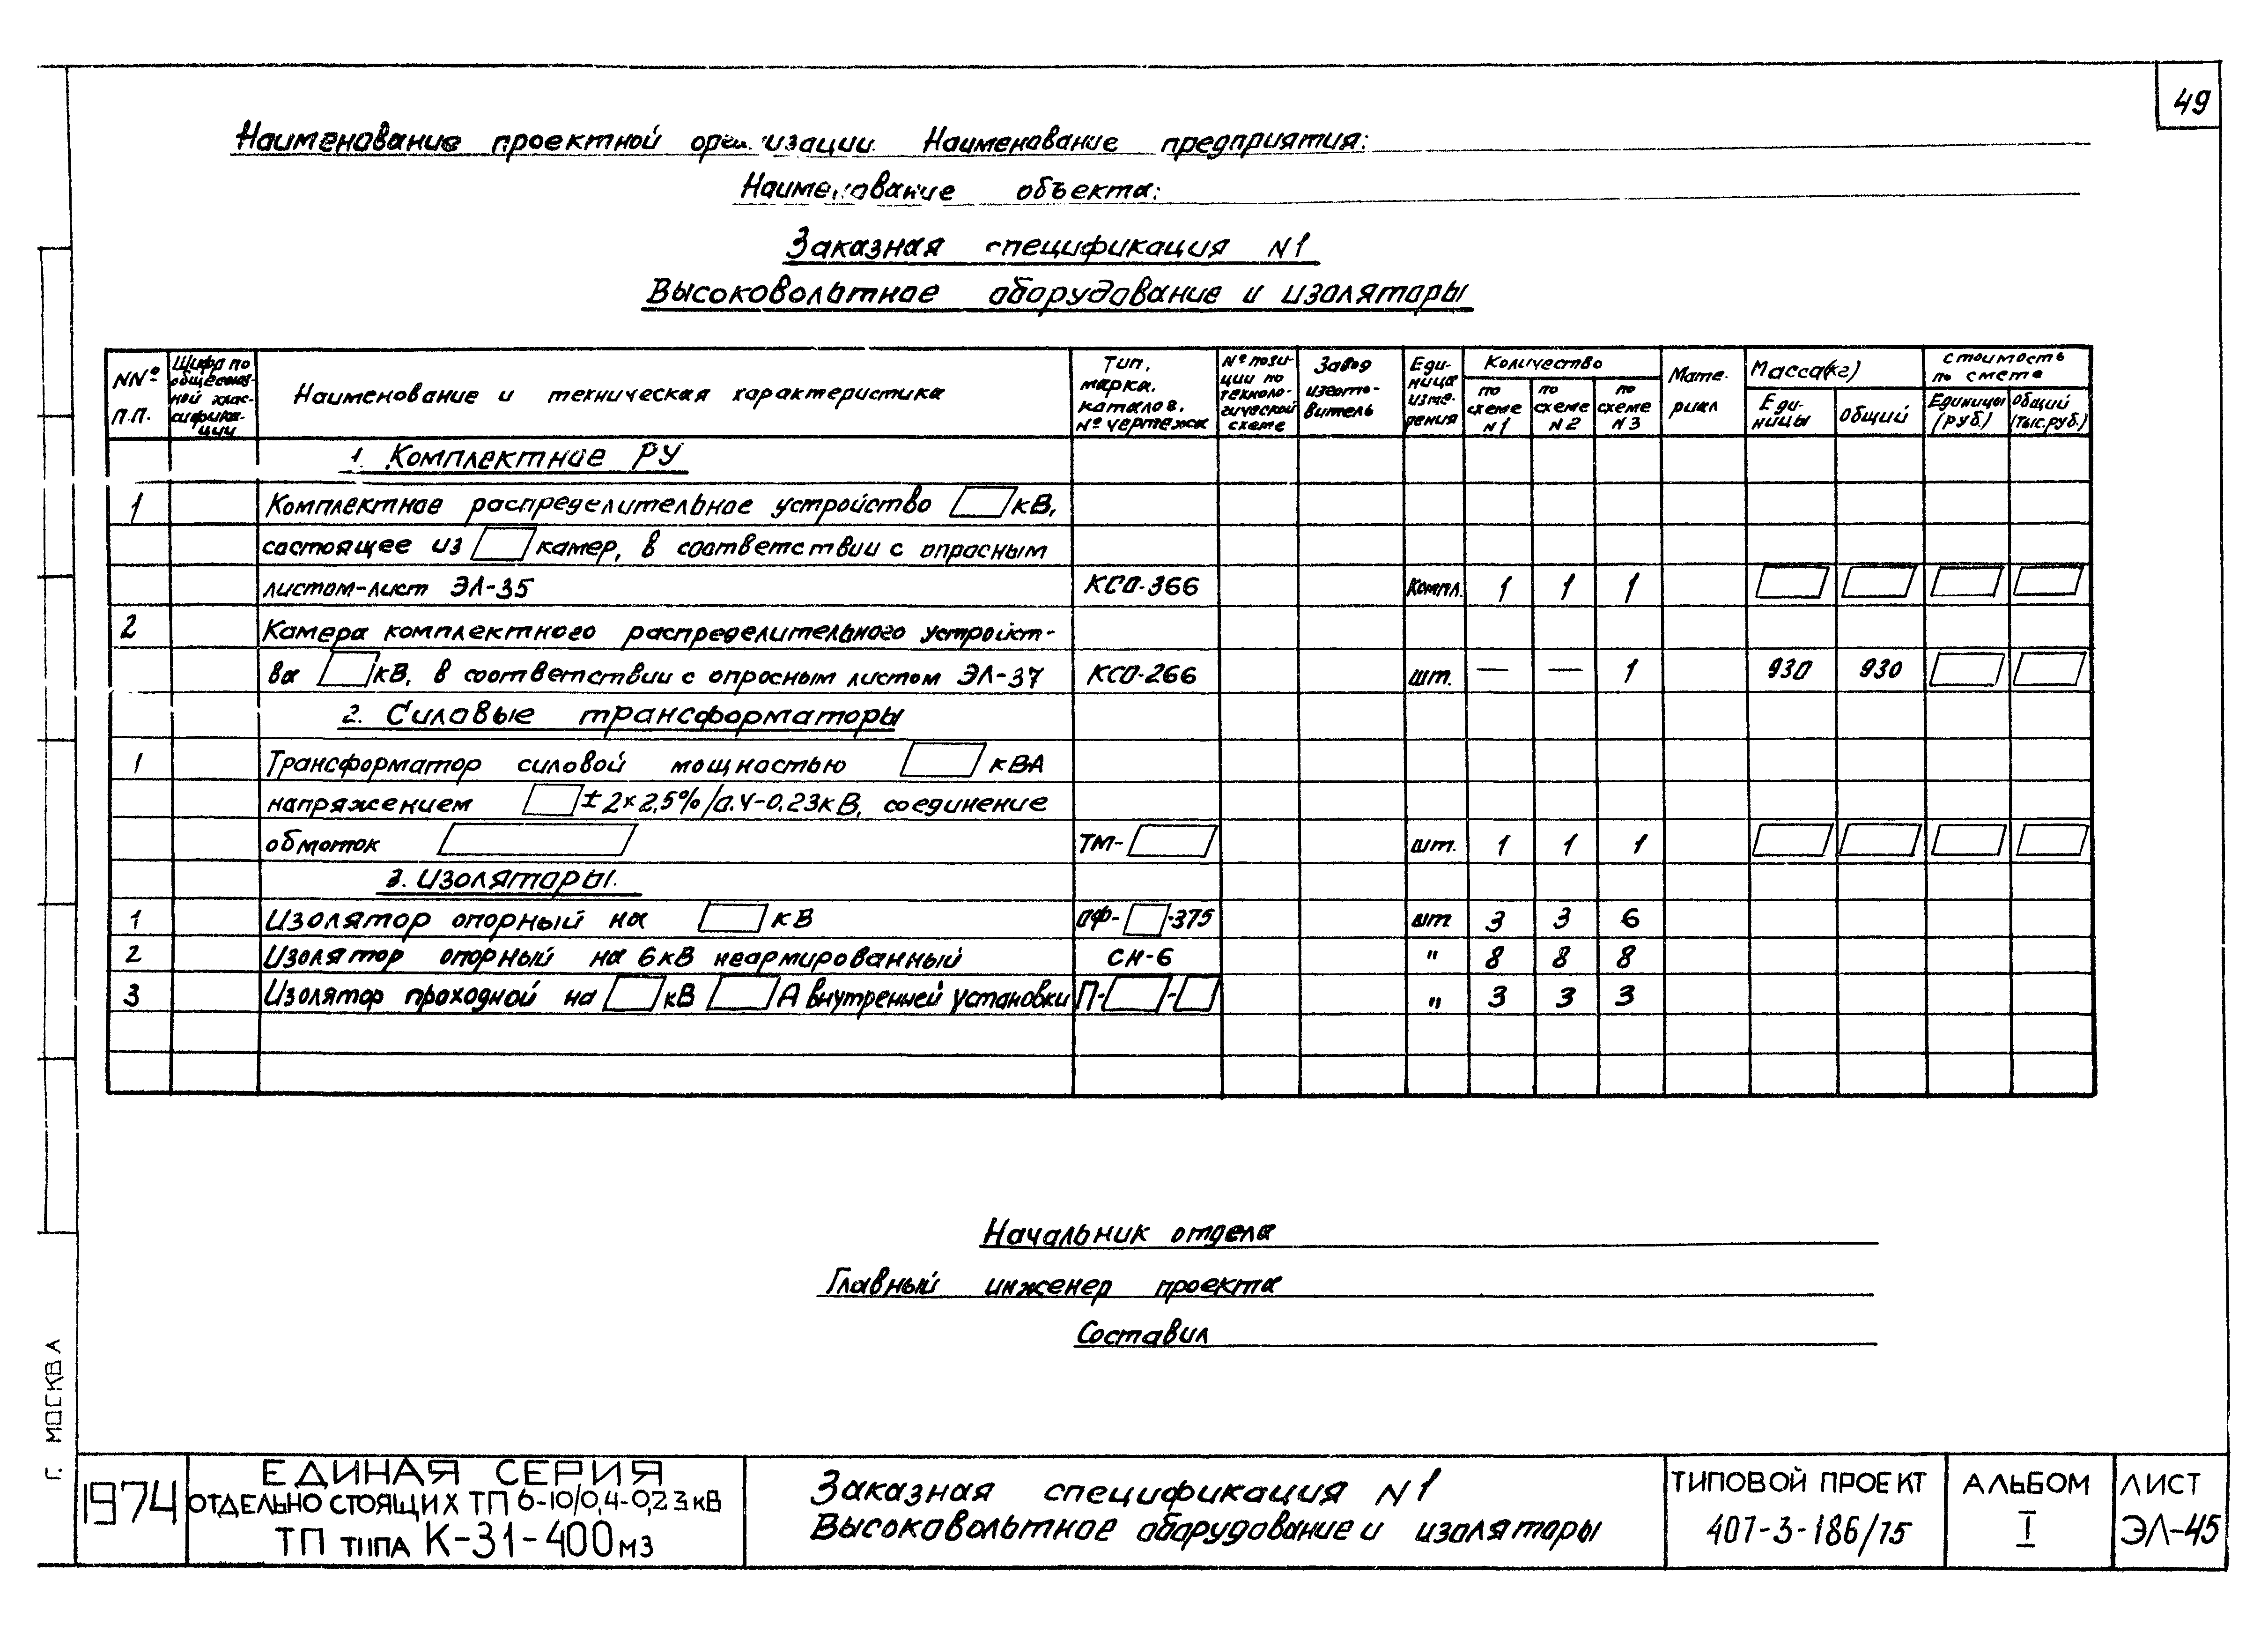 49
Наименование проектной организации. Наименование предприятия:
Наименование объекта:
Заказная спецификация N1
Высоковольтное оборудование и изоляторы
NNº п.п. | Шифр по общесоюзной классификации | Наименование и техническая характеристика | Тип, марка, каталов, Nº чертежа | Nº позиции по технологической схеме | Завод изготовитель | Единица измерения | Количество | по схеме N1 | по схеме N2 | по схеме N3 | Материал | Масса(кг) | Единицы | Общий | Стоимость по смете | Единицы (руб.) | Общий (тыс.руб.)
1. Комплектные РУ
1 Комплектное распределительное устройство кВ,
состоящее из камер, в соответствии с опросным
листом-лист ЭЛ-35 КСО-366 компл. 1 1 1
2 Камера комплектного распределительного устройст-
ва кВ, в соответствии с опросным листом ЭЛ-37 КСО-266 шт. — — 1 930 930
2. Силовые трансформаторы
1 Трансформатор силовой мощностью кВА
напряжением ± 2×2,5%/0,4-0,23кВ, соединение
обмоток ТМ- шт. 1 1 1
3. Изоляторы.
1 Изолятор опорный на кВ ОФ- -375 шт 3 3 6
2 Изолятор опорный на 6кВ неармированный СН-6 " 8 8 8
3 Изолятор проходной на кВ А внутренней установки П- - " 3 3 3
Начальник отдела
Главный инженер проекта
Составил
г. МОСКВА
1974
ЕДИНАЯ СЕРИЯ
ОТДЕЛЬНО СТОЯЩИХ ТП 6-10/0,4-0,23кВ
ТП типа К-31-400м3
Заказная спецификация N1
Высоковольтное оборудование и изоляторы
ТИПОВОЙ ПРОЕКТ
407-3-186/75
АЛЬБОМ
I
ЛИСТ
ЭЛ-45